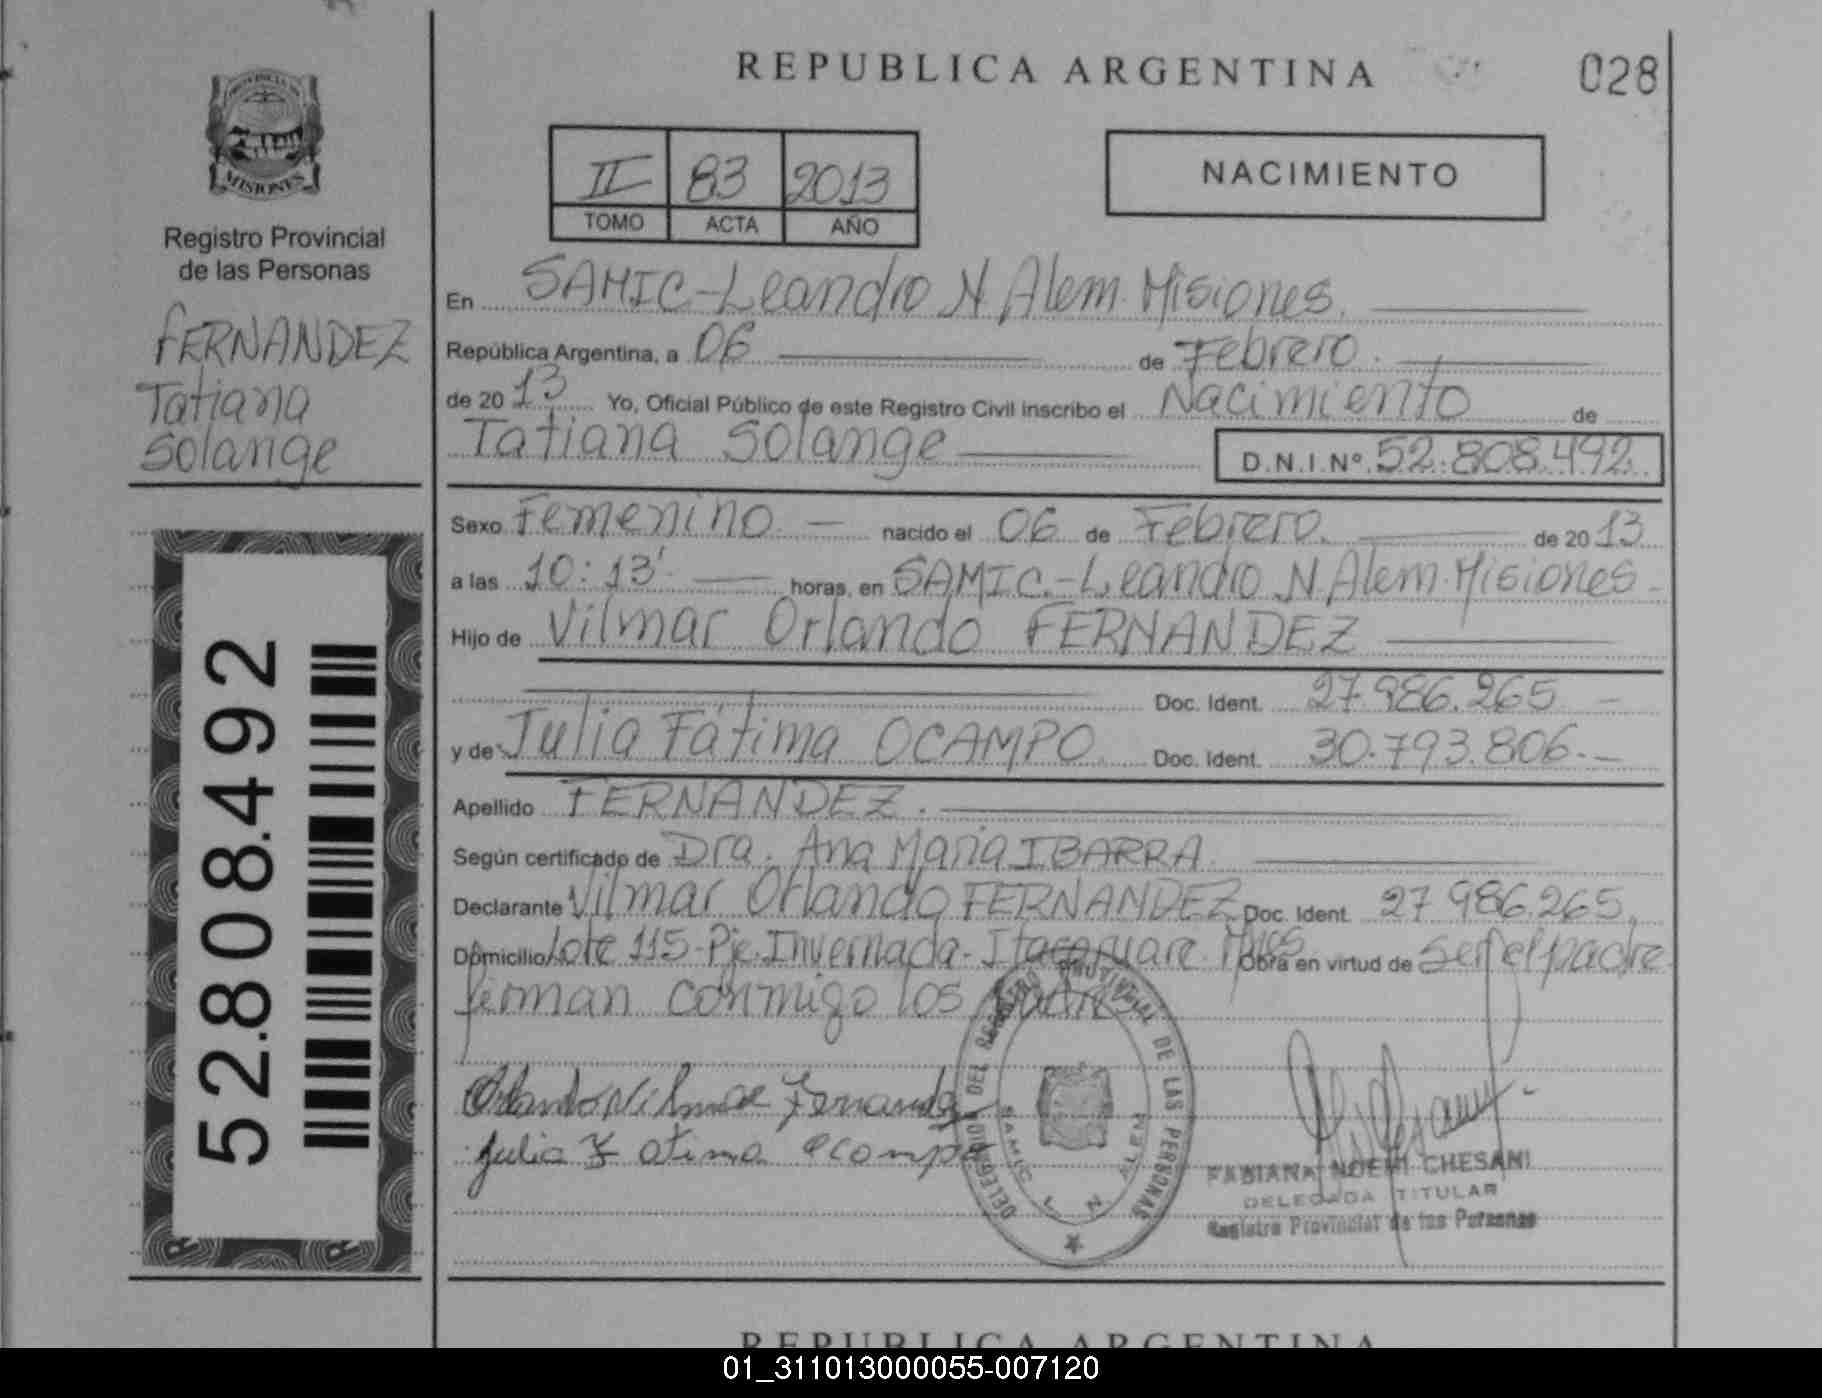 REPUBLICA ARGENTINA
028
PROVINCIA DE
MISIONES
Registro Provincial
de las Personas
FERNANDEZ
Tatiana
Solange
52.808.492
II 83 2013
TOMO ACTA AÑO
NACIMIENTO
En SAMIC-Leandro N. Alem. Misiones.
República Argentina, a 06 de Febrero.
de 2013 Yo, Oficial Público de este Registro Civil inscribo el Nacimiento de
Tatiana Solange D.N.I.Nº 52.808.492
Sexo Femenino. nacido el 06 de Febrero. de 2013
a las 10:13' horas, en SAMIC.-Leandro N. Alem. Misiones
Hijo de Vilmar Orlando FERNANDEZ
Doc. Ident. 27.986.265
y de Julia Fátima OCAMPO Doc. Ident. 30.793.806.-
Apellido FERNANDEZ.
Según certificado de Dra. Ana Maria IBARRA
Declarante Vilmar Orlando FERNANDEZ Doc. Ident. 27.986.265.
Domicilio Lote 115-Pje. Invernada-Itacaruare. Mnes Obra en virtud de ser el padre
firman conmigo los padres
Orlando Vilmar Fernandez
Julia Fatima Ocampo
DELEGACION DEL REGISTRO PROVINCIAL DE LAS PERSONAS
SAMIC L. N. ALEM
FABIANA NOEMI CHESANI
DELEGADA TITULAR
Registro Provincial de las Personas
REPUBLICA ARGENTINA
01_311013000055-007120